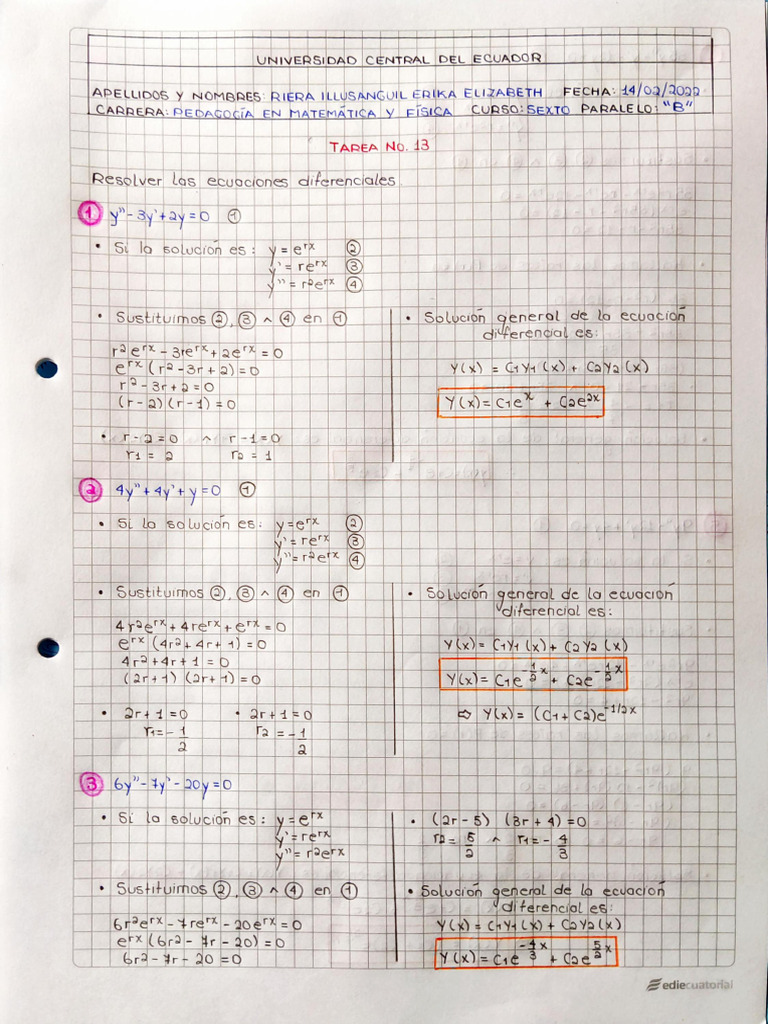 UNIVERSIDAD CENTRAL DEL ECUADOR
APELLIDOS Y NOMBRES: RIERA ILLUSANGUIL ERIKA ELIZABETH FECHA: 14/02/2022
CARRERA: PEDAGOGÍA EN MATEMÁTICA Y FÍSICA CURSO: SEXTO PARALELO: "B"
TAREA NO. 13
Resolver las ecuaciones diferenciales.
① y'' - 3y' + 2y = 0 ①
• Si la solución es: y = e^rx ②
y' = re^rx ③
y'' = r²e^rx ④
• Sustituimos ②, ③ ^ ④ en ①
r²e^rx - 3re^rx + 2e^rx = 0
e^rx (r² - 3r + 2) = 0
r² - 3r + 2 = 0
(r - 2) (r - 1) = 0
• r - 2 = 0 ^ r - 1 = 0
r1 = 2 r2 = 1
• Solución general de la ecuación
diferencial es:
Y(x) = C1Y1(x) + C2Y2(x)
Y(x) = C1e^x + C2e^2x
② 4y'' + 4y' + y = 0 ①
• Si la solución es: y = e^rx ②
y' = re^rx ③
y'' = r²e^rx ④
• Sustituimos ②, ③ ^ ④ en ①
4r²e^rx + 4re^rx + e^rx = 0
e^rx (4r² + 4r + 1) = 0
4r² + 4r + 1 = 0
(2r + 1) (2r + 1) = 0
• 2r + 1 = 0 • 2r + 1 = 0
r1 = -1/2 r2 = -1/2
• Solución general de la ecuación
diferencial es:
Y(x) = C1Y1(x) + C2Y2(x)
Y(x) = C1e^-1/2 x + C2e^-1/2 x
⇨ Y(x) = (C1 + C2)e^-1/2x
③ 6y'' - 7y' - 20y = 0
• Si la solución es: y = e^rx
y' = re^rx
y'' = r²e^rx
• Sustituimos ②, ③ ^ ④ en ①
6r²e^rx - 7re^rx - 20e^rx = 0
e^rx (6r² - 7r - 20) = 0
6r² - 7r - 20 = 0
• (2r - 5) (3r + 4) = 0
r2 = 5/2 ^ r1 = -4/3
• Solución general de la ecuación
diferencial es:
Y(x) = C1Y1(x) + C2Y2(x)
Y(x) = C1e^-4/3 x + C2e^5/2 x
ediecuatorial